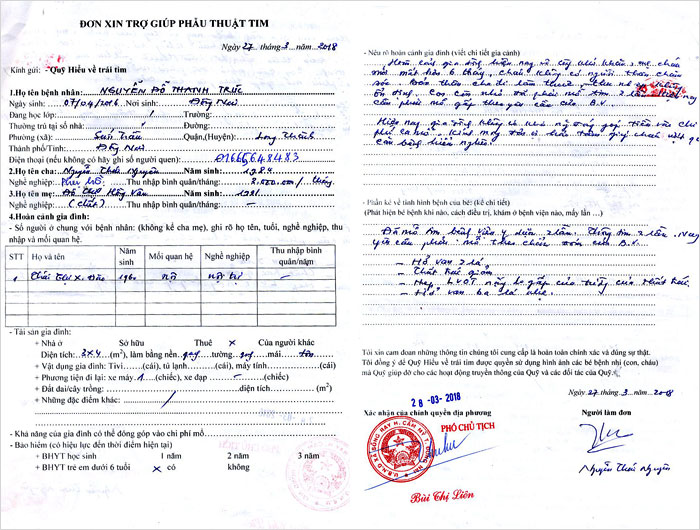 ĐƠN XIN TRỢ GIÚP PHẪU THUẬT TIM
Ngày 27 tháng 3 năm 2018
Kính gửi: - Quỹ Hiểu về trái tim
1.Họ tên bệnh nhân: NGUYỄN ĐỖ THANH TRÚC
Ngày sinh: 07/04/2016 Nơi sinh: Đồng Nai
Đang học lớp: / Trường:
Thường trú tại số nhà: / Đường:
Phường (xã): Suối Trầu Quận,(Huyện): Long Thành
Thành phố/Tỉnh: Đồng Nai
Điện thoại (nếu không có hãy ghi số người quen): 01665648483
2.Họ tên cha: Nguyễn Thái Nguyên Năm sinh: 1984
Nghề nghiệp: Phụ hồ Thu nhập bình quân/tháng: 2.000.000/ tháng
3.Họ tên mẹ: Đỗ Thị Hồng Vân Năm sinh: 1981
Nghề nghiệp: (chết) Thu nhập bình quân/tháng:
4.Hoàn cảnh gia đình:
- Số người ở chung với bệnh nhân: (không kể cha mẹ), ghi rõ họ tên, tuổi, nghề nghiệp, thu
nhập và mối quan hệ.
STT Họ và tên Năm sinh Mối quan hệ Nghề nghiệp Thu nhập bình quân/năm
1 Thái Thị X. Đào 1960 nội nội trợ -
- Tài sản gia đình:
+ Nhà ở Sở hữu Thuê x Của người khác
Diện tích: 3x4 (m²), làm bằng nền: gạch tường: gạch mái: tôn
+ Vật dụng gia đình: Tivi (cái), tủ lạnh (cái), máy tính (cái)
+ Phương tiện đi lại: xe máy 1 (chiếc), xe đạp - (chiếc)
+ Đất đai/cây trồng: diện tích (m²)
+ Những đặc điểm khác: /
- Khả năng của gia đình có thể đóng góp vào chi phí mổ
- Bảo hiểm (có hiệu lực đến thời điểm hiện tại)
+ BHYT học sinh 1 năm 2 năm 3 năm
+ BHYT trẻ em dưới 6 tuổi x có không
- Nêu rõ hoàn cảnh gia đình (viết chi tiết gia cảnh)
Hiện nay gia đình rất khó khăn, mẹ cháu
mới mất hơn 6 tháng, cháu không có người thân chăm
sóc. Bố
ổn định. Con còn nhỏ và phải mổ tim 2 lần
cần phải mổ gấp theo yêu cầu của B.V
Hiện nay gia đình không có khả năng đóng góp tiền vào chi
phí ca mổ. Kính mong
- Phần kể về tình hình bệnh của bé: (kể chi tiết)
(Phát hiện bé bệnh khi nào, cách điều trị, khám ở bệnh viện nào, mấy lần …)
Đã mổ tim bệnh viện y dược 2 lần. Thông tim 2 lần. Nay
yêu cầu phải mổ theo chẩn đoán của B.V.
- Hở van 2 lá.
- Thất trái giãn
- Hẹp LVOT nặng do gấp của thất trái.
- Hở van ba lá nhẹ.
Tôi xin cam đoan những thông tin chúng tôi cung cấp là hoàn toàn chính xác và đúng sự thật.
Tôi đồng ý để Quỹ Hiểu về trái tim được quyền sử dụng hình ảnh các bé bệnh nhi (con, cháu)
mà Quỹ giúp đỡ cho các hoạt động truyền thông của Quỹ và các đối tác của Quỹ.
28-03-2018
Ngày 27 tháng 3 năm 2018
Xác nhận của chính quyền địa phương
Người làm đơn
PHÓ CHỦ TỊCH
Bùi Thị Liên
Nguyễn Thái Nguyên